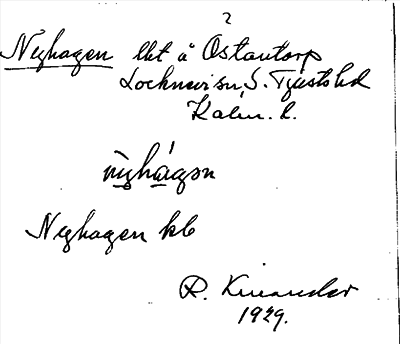 ?
Nyhagen lht å Östantorp
Locknevi sn, S. Tjusts hd
Kalm. l.
nỳhágən
Nyhagen kb
R. Kinander
1929.